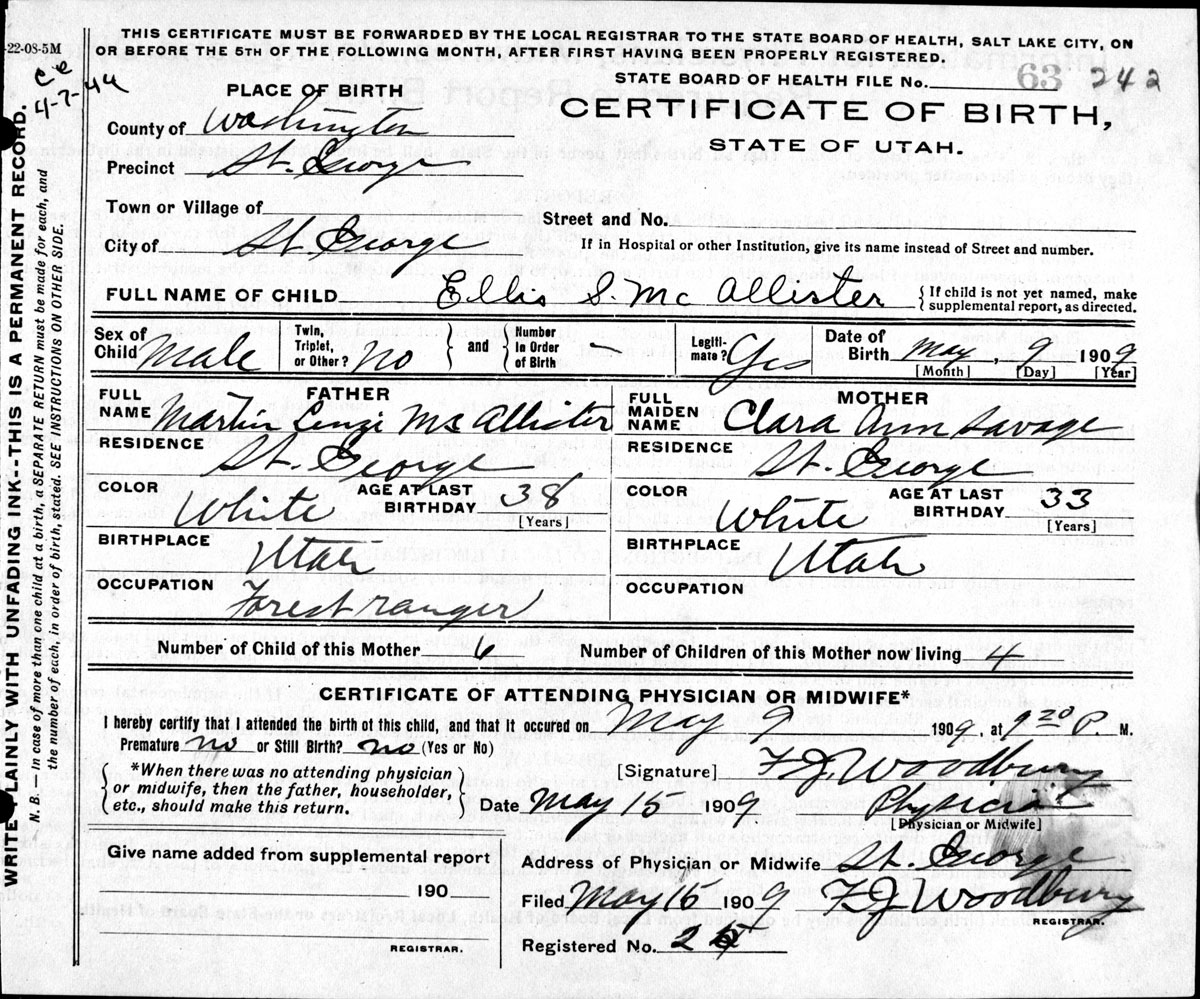 -22-08-5M
THIS CERTIFICATE MUST BE FORWARDED BY THE LOCAL REGISTRAR TO THE STATE BOARD OF HEALTH, SALT LAKE CITY, ON
OR BEFORE THE 5TH OF THE FOLLOWING MONTH, AFTER FIRST HAVING BEEN PROPERLY REGISTERED.
STATE BOARD OF HEALTH FILE No. 63 242
4-7-44
PLACE OF BIRTH
CERTIFICATE OF BIRTH,
STATE OF UTAH.
County of Washington
Precinct St. George
Town or Village of
Street and No.
City of St. George
If in Hospital or other Institution, give its name instead of Street and number.
FULL NAME OF CHILD Ellis S. McAllister { If child is not yet named, make
supplemental report, as directed.
Sex of Child Male Twin, Triplet, or Other? No } and { Number in Order of Birth - Legiti-mate? Yes Date of Birth May, 9 1909
[Month] [Day] [Year]
FATHER
FULL NAME Martin Lenzi McAllister
RESIDENCE St. George
COLOR White AGE AT LAST BIRTHDAY 38
[Years]
BIRTHPLACE Utah
OCCUPATION Forest ranger
MOTHER
FULL MAIDEN NAME Clara Ann Savage
RESIDENCE St. George
COLOR White AGE AT LAST BIRTHDAY 33
[Years]
BIRTHPLACE Utah
OCCUPATION
Number of Child of this Mother 6 Number of Children of this Mother now living 4
CERTIFICATE OF ATTENDING PHYSICIAN OR MIDWIFE*
I hereby certify that I attended the birth of this child, and that it occured on May 9 1909, at P. M.
Premature no or Still Birth? no (Yes or No)
[Signature] F.J. Woodbury
{ *When there was no attending physician
or midwife, then the father, householder,
etc., should make this return. }
Date May 15 1909 Physician
[Physician or Midwife]
Give name added from supplemental report
190
REGISTRAR.
Address of Physician or Midwife St. George
Filed May 15 1909 F.J. Woodbury
REGISTRAR.
Registered No. 2
WRITE PLAINLY WITH UNFADING INK--THIS IS A PERMANENT RECORD.
N. B. — In case of more than one child at a birth, a SEPARATE RETURN must be made for each, and
the number of each, in order of birth, stated. SEE INSTRUCTIONS ON OTHER SIDE.